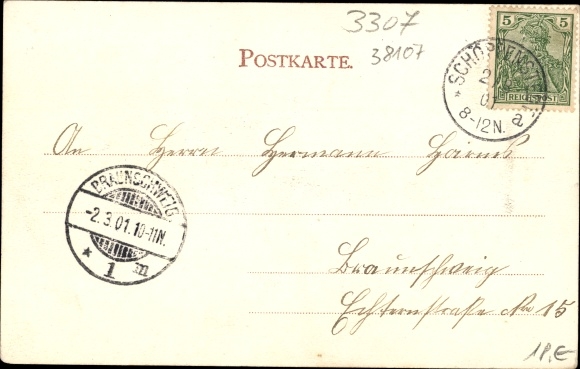 3307
38107
POSTKARTE.
5 5
REICHSPOST
2.3
01
8-12N. a
An Herrn Hermann
BRAUNSCHWEIG.
-2.3.01.10-11N.
* 1 m
Braunschweig
Echternstraße No 15
1P.€